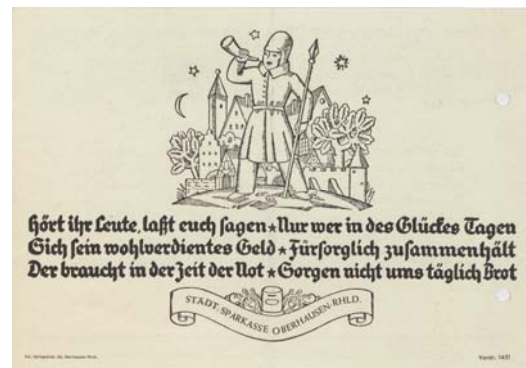 Hört ihr Leute, laßt euch sagen ⋆ Nur wer in des Glückes Tagen
Sich sein wohlverdientes Geld ⋆ Fürsorglich zusammenhält
Der braucht in der Zeit der Not ⋆ Sorgen nicht ums täglich Brot
STÄDT. SPARKASSE OBERHAUSEN-RHLD.